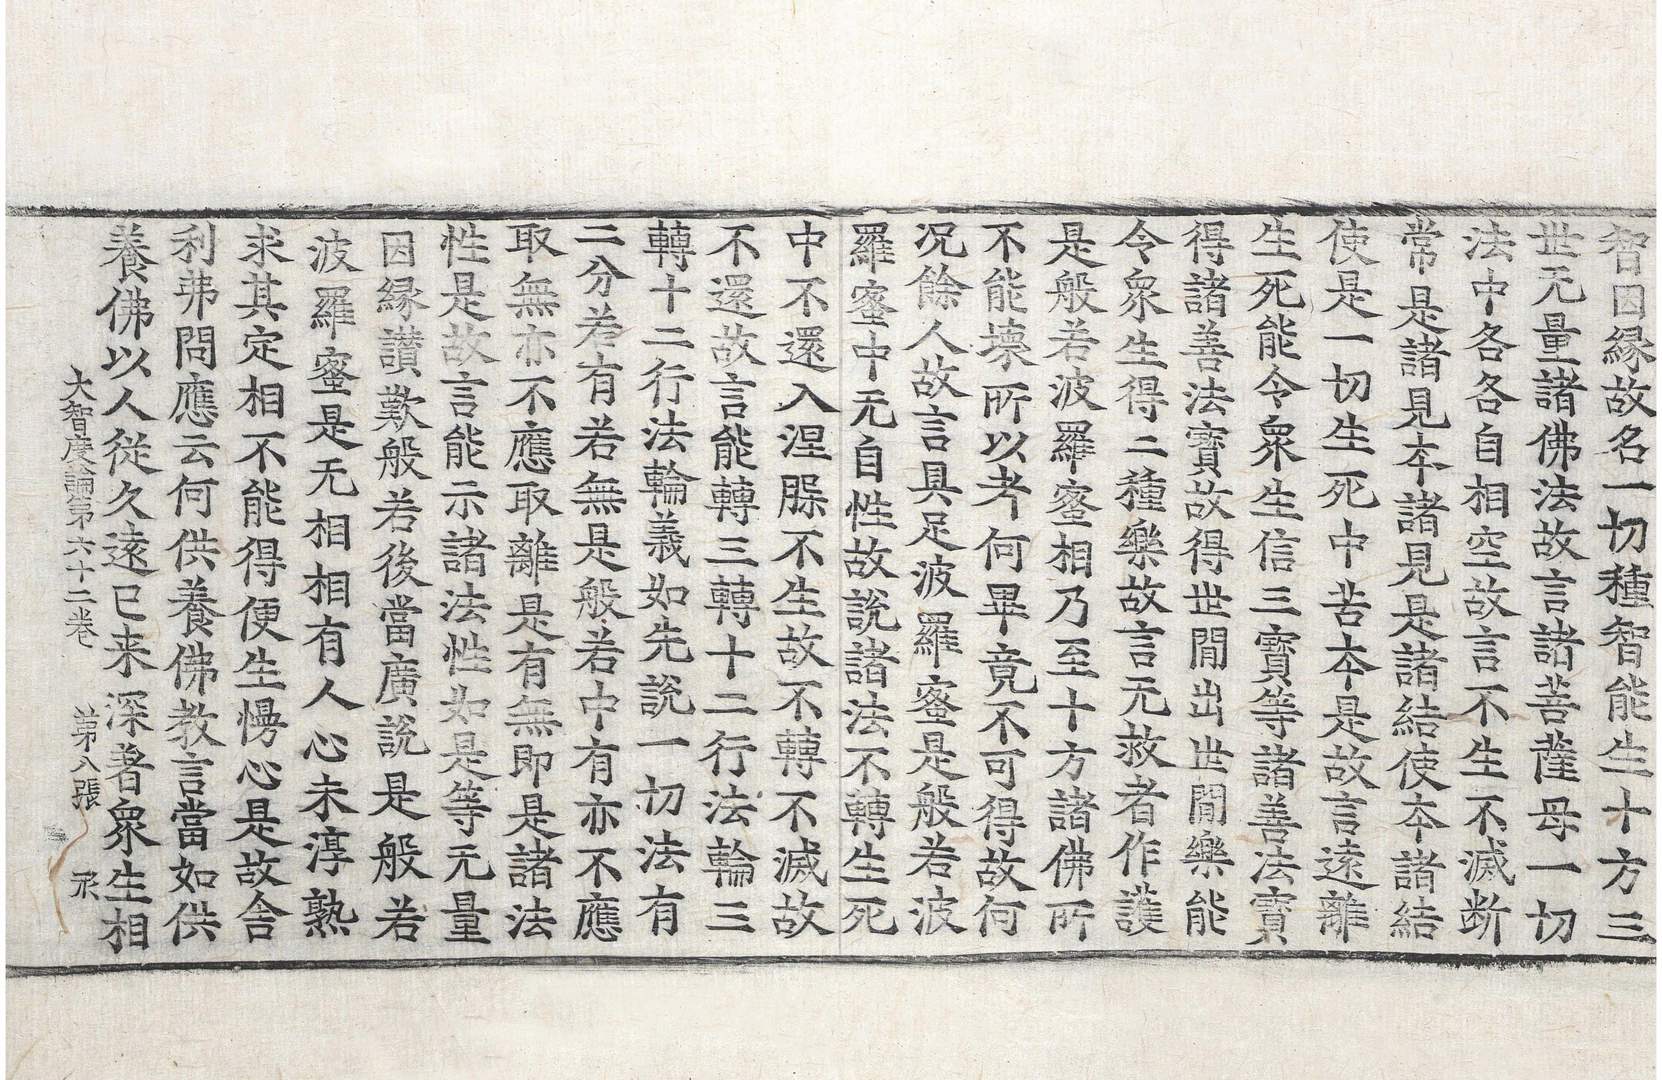 智因縁故名一切種智能生十方三
世无量諸佛法故言諸菩薩母一切
法中各各自相空故言不生不滅断
常是諸見夲諸見是諸結使夲諸結
使是一切生死中苦夲是故言遠離
生死能令衆生信三寶等諸善法寶
得諸善法寶故得世閒出世閒樂能
令衆生得二種樂故言无救者作護
是般若波羅蜜相乃至十方諸佛所
不能壞所以者何畢竟不可得故何
况餘人故言具足波羅蜜是般若波
羅蜜中无自性故說諸法不轉生死
中不還入涅槃不生故不轉不滅故
不還故言能轉三轉十二行法輪三
轉十二行法輪義如先說一切法有
二分若有若無是般若中有亦不應
取無亦不應取離是有無即是諸法
性是故言能示諸法性如是等无量
因縁讃歎般若後當廣說是般若
波羅蜜是无相相有人心未淳熟
求其定相不能得便生慢心是故舍
利弗問應云何供養佛教言當如供
養佛以人從久遠已来深著衆生相
大智度論第六十二卷　第八張　氶